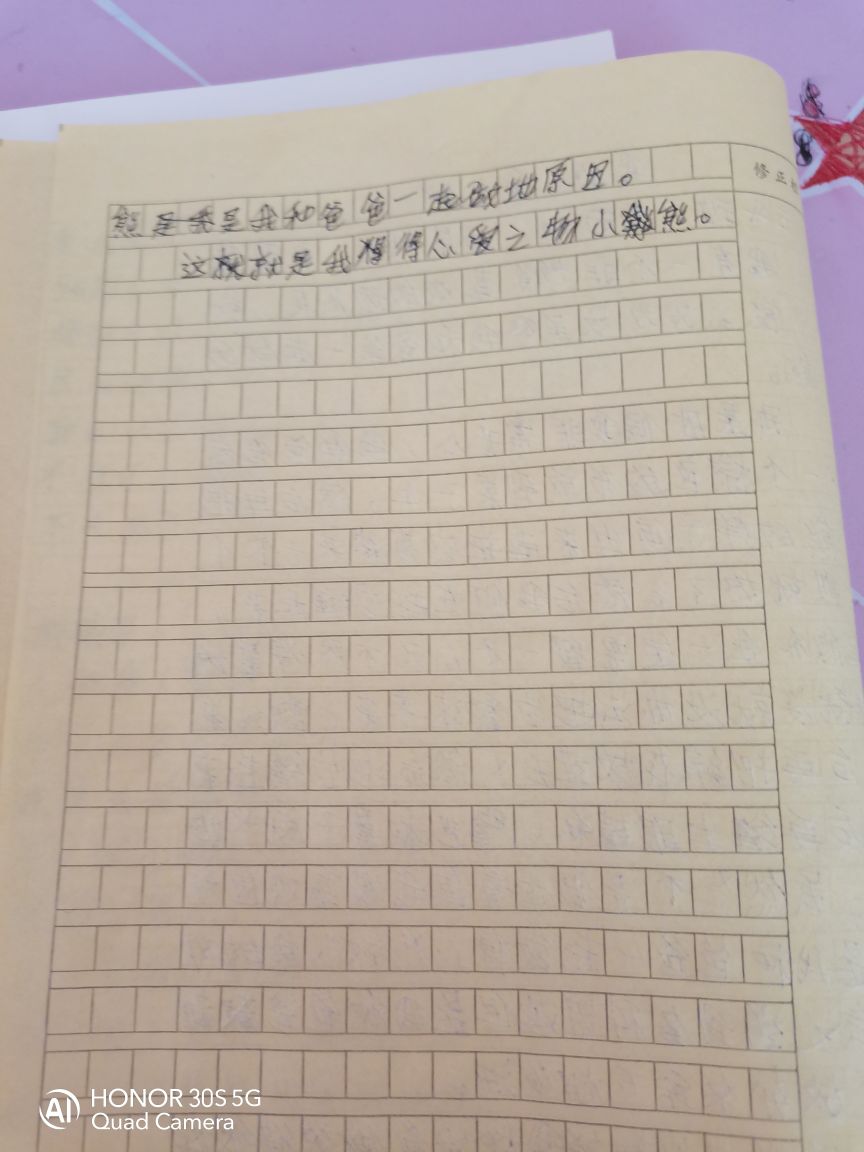 修正
熊是我和爸爸一起做地原因。
这就是我得心爱之物小熊。
AI HONOR 30S 5G
Quad Camera